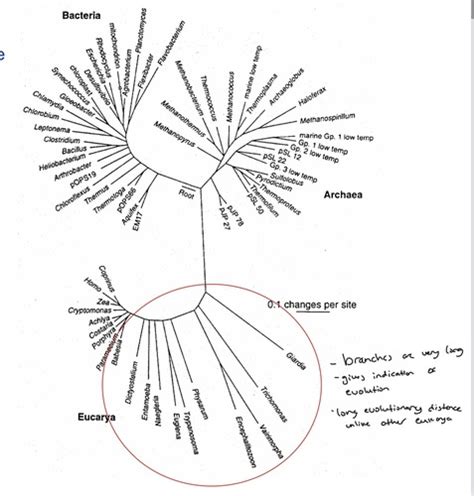 Bacteria
mitochondrion
Planctomyces
Flavobacterium
Flexibacter
Agrobacterium
Rhodocyclus
Escherichia
Desulfovibrio
chloroplast
Synechococcus
Gloeobacter
Chlamydia
Chlorobium
Leptonema
Clostridium
Bacillus
Heliobacterium
Arthrobacter
pOPS19
Chloroflexus
Thermus
Thermotoga
pOPS66
Aquifex
EM17
Root
Methanobacterium
Methanothermus
Methanopyrus
Thermococcus
Methanococcus
marine low temp
Thermoplasma
Archaeoglobus
Haloferax
Methanospirillum
marine Gp. 1 low temp
Gp. 1 low temp
Gp. 2 low temp
pSL 12
pSL 22
Gp. 3 low temp
Sulfolobus
Pyrodictium
Thermoproteus
Thermofilum
pSL 50
pJP 78
pJP 27
Archaea
Coprinus
Homo
Zea
Cryptomonas
Achlya
Costaria
Porphyra
Paramecium
Babesia
Dictyostelium
Entamoeba
Naegleria
Euglena
Trypanosoma
Physarum
Encephalitozoon
Vairimorpha
Trichomonas
Giardia
Eucarya
0.1 changes per site
- branches are very long
- gives indication of
evolution
long evolutionary distance
unlike other